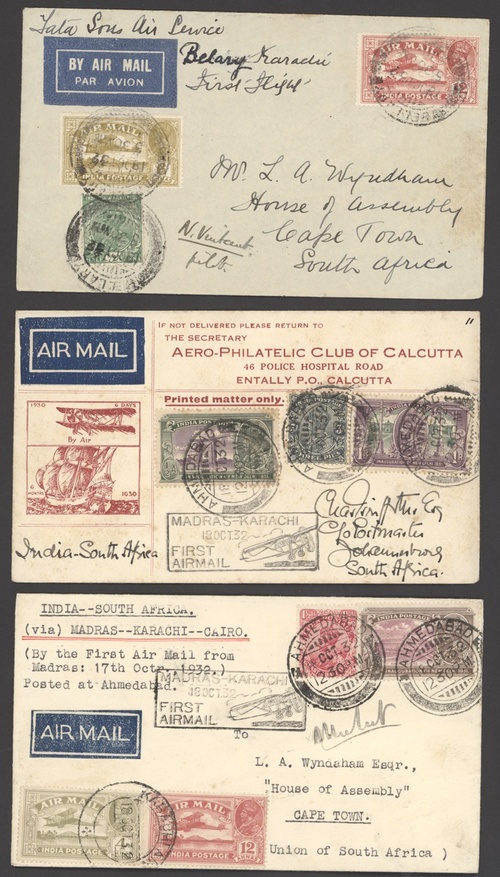 Tata Sons Air Service
BY AIR MAIL
PAR AVION
Belary Karachi
First Flight
AIR MAIL
INDIA POSTAGE
AIR MAIL
INDIA POSTAGE
Mr. L. A. Wyndham
House of Assembly
Cape Town
South Africa
Pilot.
"
AIR MAIL
IF NOT DELIVERED PLEASE RETURN TO
THE SECRETARY
AERO-PHILATELIC CLUB OF CALCUTTA
46 POLICE HOSPITAL ROAD
ENTALLY P.O., CALCUTTA
Printed matter only.
1930 6 DAYS
By Air
6 MONTHS 1630
INDIA POSTAGE
AHMEDABAD
THREE PIES
AHMEDABAD
MADRAS-KARACHI
18 OCT. 32
FIRST
AIRMAIL
C/o Postmaster
Johannesburg
South Africa.
India-South Africa
INDIA--SOUTH AFRICA.
(via) MADRAS--KARACHI--CAIRO.
(By the First Air Mail from
Madras: 17th Oct. 1932.)
Posted at Ahmedabad.
AHMEDABAD
OCT. 32
12.30 PM
INDIA POSTAGE
AHMEDABAD
12.30 PM
MADRAS-KARACHI
18 OCT. 32
FIRST
AIRMAIL
AIR MAIL
To
L. A. Wyndaham Esqr.,
"House of Assembly"
CAPE TOWN.
Union of South Africa )
AIR MAIL
INDIA POSTAGE
KARACHI
18 OCT. 32
AIR MAIL
12
ANNAS
INDIA POSTAGE